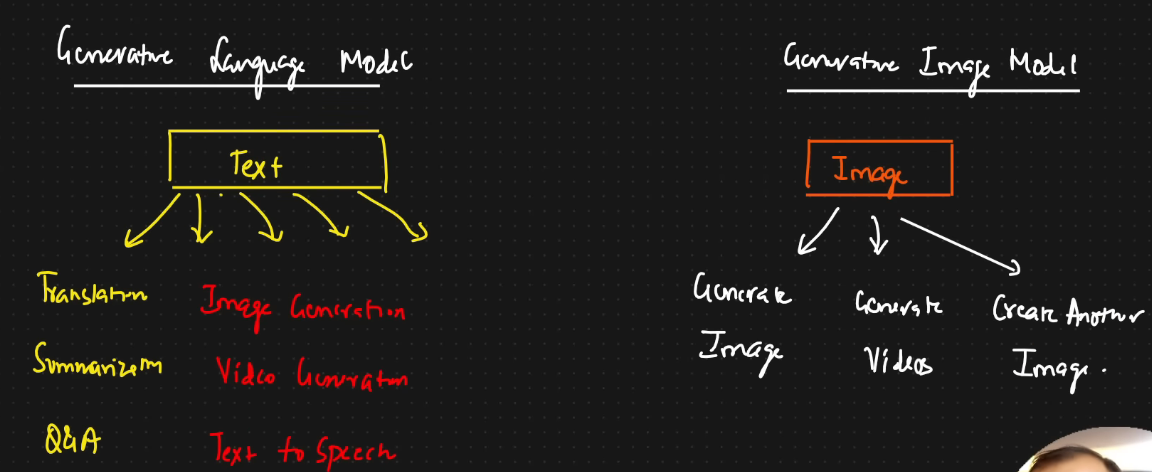 Generative Language Model
Text
Translation
Summarization
Q&A
Image Generation
Video Generation
Text to Speech
Generative Image Model
Image
Generate
Image
Generate
Videos
Create Another
Image.